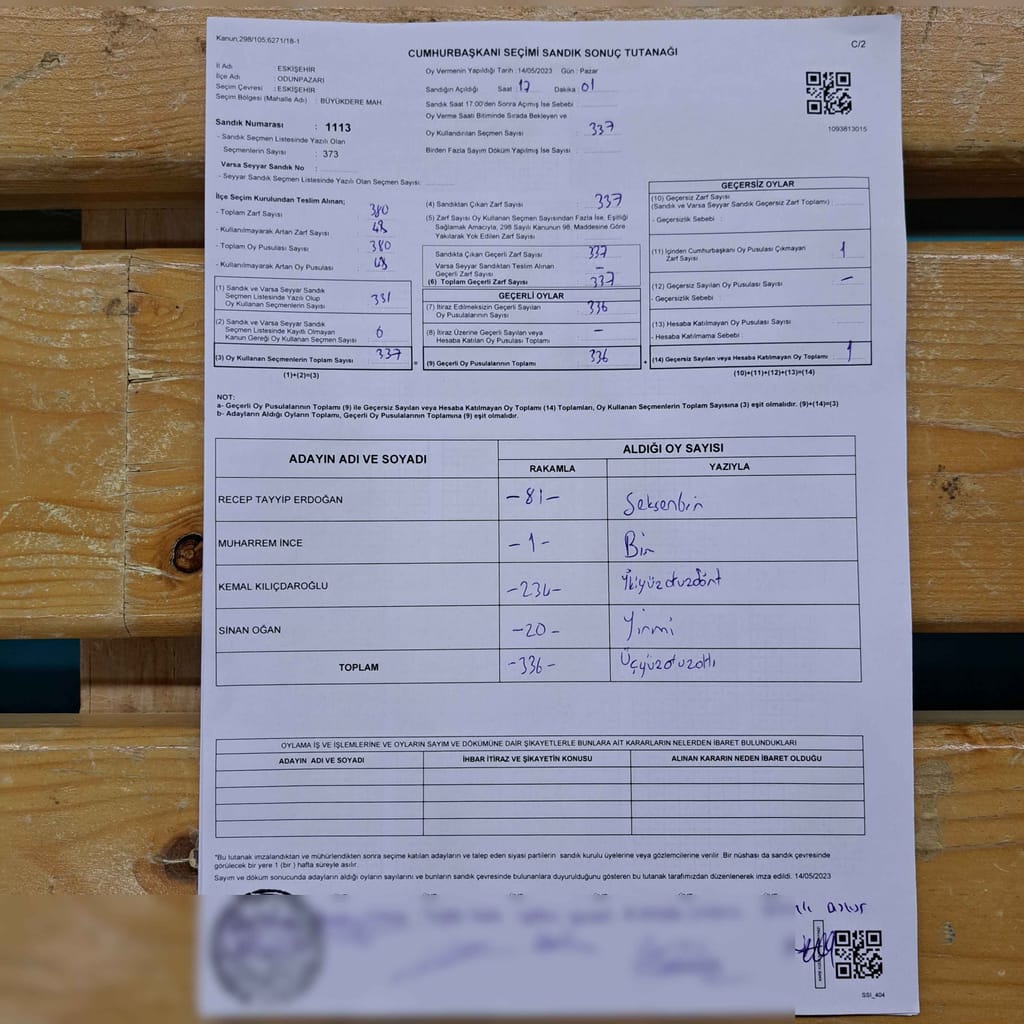 Kanun;298/105,6271/18-1
CUMHURBAŞKANI SEÇİMİ SANDIK SONUÇ TUTANAĞI
C/2
İl Adı : ESKİŞEHİR
İlçe Adı : ODUNPAZARI
Seçim Çevresi : ESKİŞEHİR
Seçim Bölgesi (Mahalle Adı) : BÜYÜKDERE MAH
Sandık Numarası : 1113
- Sandık Seçmen Listesinde Yazılı Olan
Seçmenlerin Sayısı : 373
Varsa Seyyar Sandık No :
- Seyyar Sandık Seçmen Listesinde Yazılı Olan Seçmen Sayısı:
Oy Vermenin Yapıldığı Tarih : 14/05/2023 Gün : Pazar
Sandığın Açıldığı Saat : 17 Dakika 01
Sandık Saat 17.00'den Sonra Açımış İse Sebebi :
Oy Verme Saati Bitiminde Sırada Bekleyen ve
Oy Kullandırılan Seçmen Sayısı : 337
Birden Fazla Sayım Döküm Yapılmış İse Sayısı :
1093813015
İlçe Seçim Kurulundan Teslim Alınan;
- Toplam Zarf Sayısı : 380
- Kullanılmayarak Artan Zarf Sayısı : 43
- Toplam Oy Pusulası Sayısı : 380
- Kullanılmayarak Artan Oy Pusulası : 43
(1) Sandık ve Varsa Seyyar Sandık
Seçmen Listesinde Yazılı Olup
Oy Kullanan Seçmenlerin Sayısı : 331
(2) Sandık ve Varsa Seyyar Sandık
Seçmen Listesinde Kayıtlı Olmayan
Kanun Gereği Oy Kullanan Seçmen Sayısı : 6
(3) Oy Kullanan Seçmenlerin Toplam Sayısı : 337
(1)+(2)=(3)
(4) Sandıktan Çıkan Zarf Sayısı : 337
(5) Zarf Sayısı Oy Kullanan Seçmen Sayısından Fazla İse, Eşitliği
Sağlamak Amacıyla, 298 Sayılı Kanunun 98. Maddesine Göre
Yakılarak Yok Edilen Zarf Sayısı :
Sandıkta Çıkan Geçerli Zarf Sayısı : 337
Varsa Seyyar Sandıktan Teslim Alınan
Geçerli Zarf Sayısı : –
(6) Toplam Geçerli Zarf Sayısı : 337
GEÇERLİ OYLAR
(7) İtiraz Edilmeksizin Geçerli Sayılan
Oy Pusulalarının Sayısı : 336
(8) İtiraz Üzerine Geçerli Sayılan veya
Hesaba Katılan Oy Pusulası Toplamı : –
= (9) Geçerli Oy Pusulalarının Toplamı : 336
GEÇERSİZ OYLAR
(10) Geçersiz Zarf Sayısı
(Sandık ve Varsa Seyyar Sandık Geçersiz Zarf Toplamı) :
- Geçersizlik Sebebi :
(11) İçinden Cumhurbaşkanı Oy Pusulası Çıkmayan
Zarf Sayısı : 1
(12) Geçersiz Sayılan Oy Pusulası Sayısı : –
- Geçersizlik Sebebi :
(13) Hesaba Katılmayan Oy Pusulası Sayısı :
- Hesaba Katılmama Sebebi :
+ (14) Geçersiz Sayılan veya Hesaba Katılmayan Oy Toplamı : 1
(10)+(11)+(12)+(13)=(14)
NOT:
a- Geçerli Oy Pusulalarının Toplamı (9) ile Geçersiz Sayılan veya Hesaba Katılmayan Oy Toplamı (14) Toplamları, Oy Kullanan Seçmenlerin Toplam Sayısına (3) eşit olmalıdır. (9)+(14)=(3)
b- Adayların Aldığı Oyların Toplamı, Geçerli Oy Pusulalarının Toplamına (9) eşit olmalıdır.
ADAYIN ADI VE SOYADI ALDIĞI OY SAYISI
RAKAMLA YAZIYLA
RECEP TAYYİP ERDOĞAN -81- Seksenbir
MUHARREM İNCE -1- Bir
KEMAL KILIÇDAROĞLU -234- İkiyüzotuzdört
SİNAN OĞAN -20- Yirmi
TOPLAM -336- Üçyüzotuzaltı
OYLAMA İŞ VE İŞLEMLERİNE VE OYLARIN SAYIM VE DÖKÜMÜNE DAİR ŞİKAYETLERLE BUNLARA AİT KARARLARIN NELERDEN İBARET BULUNDUKLARI
ADAYIN ADI VE SOYADI İHBAR İTİRAZ VE ŞİKAYETİN KONUSU ALINAN KARARIN NEDEN İBARET OLDUĞU
"Bu tutanak imzalandıktan ve mühürlendikten sonra seçime katılan adayların ve talep eden siyasi partilerin sandık kurulu üyelerine veya gözlemcilerine verilir .Bir nüshası da sandık çevresinde
görülecek bir yere 1 (bir ) hafta süreyle asılır.
Sayım ve döküm sonucunda adayların aldığı oyların sayılarını ve bunların sandık çevresinde bulunanlara duyurulduğunu gösteren bu tutanak tarafımızdan düzenlenerek imza edildi. 14/05/2023
SSI_404